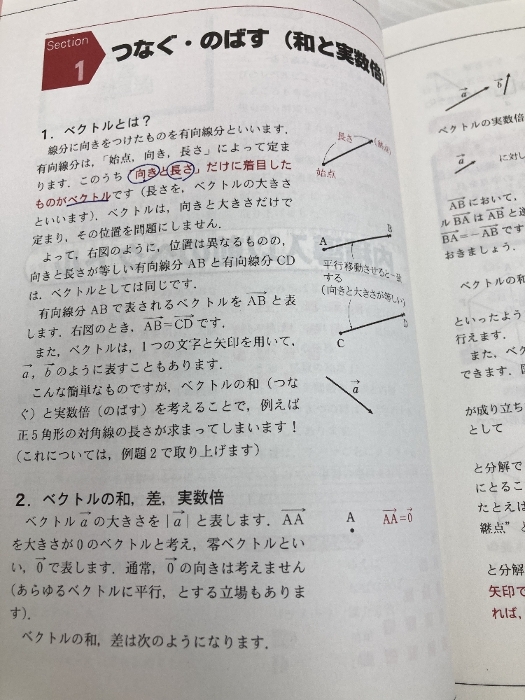 Section
1
つなぐ・のばす（和と実数倍）
1．ベクトルとは？
線分に向きをつけたものを有向線分といいます．
有向線分は，「始点，向き，長さ」によって定ま
ります．このうち「向きと長さ」だけに着目した
ものがベクトルです（長さを，ベクトルの大きさ
といいます）．ベクトルは，向きと大きさだけで
定まり，その位置を問題にしません．
よって，右図のように，位置は異なるものの，
向きと長さが等しい有向線分 AB と有向線分 CD
は，ベクトルとしては同じです．
有向線分 AB で表されるベクトルを AB→ と表
します．右図のとき，AB→＝CD→ です．
また，ベクトルは，1つの文字と矢印を用いて，
a→，b→ のように表すこともあります．
こんな簡単なものですが，ベクトルの和（つな
ぐ）と実数倍（のばす）を考えることで，例えば
正5角形の対角線の長さが求まってしまいます！
（これについては，例題2で取り上げます）
長さ
始点
A
B
平行移動させると一致
する
（向きと大きさが等しい）
C
D
a→
2．ベクトルの和，差，実数倍
ベクトル a→ の大きさを |a→| と表します．AA→
を大きさが0のベクトルと考え，零ベクトルとい
い，0→ で表します．通常，0→ の向きは考えません
（あらゆるベクトルに平行，とする立場もありま
す）．
ベクトルの和，差は次のようになります．
A
AA→＝0→
a→
b→
ベクトルの実数倍
a→
に対し
AB→ において，
ル BA→ は AB→ と逆
BA→＝－AB→ です
おきましょう．
ベクトルの和
といったよう
行えます．
また，ベク
できます．
が成り立ち
として
と分解で
にとるこ
たとえば
継点"と
と分解
矢印で
れば，